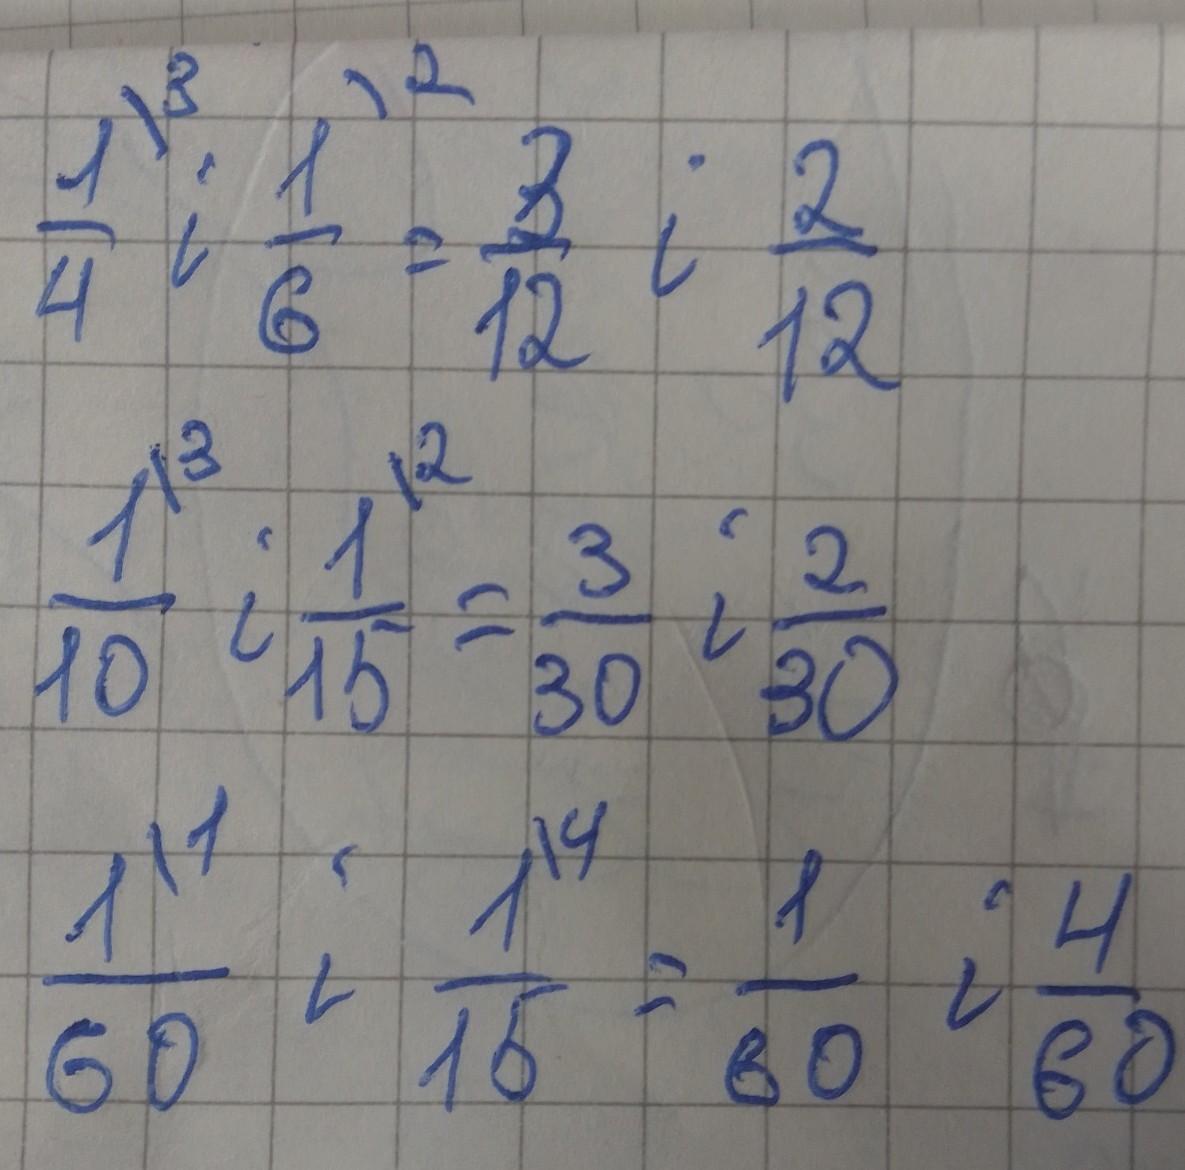 1/4\3 і 1/6\2 = 3/12 і 2/12
1/10\3 і 1/15\2 = 3/30 і 2/30
1/60\1 і 1/15\4 = 1/60 і 4/60